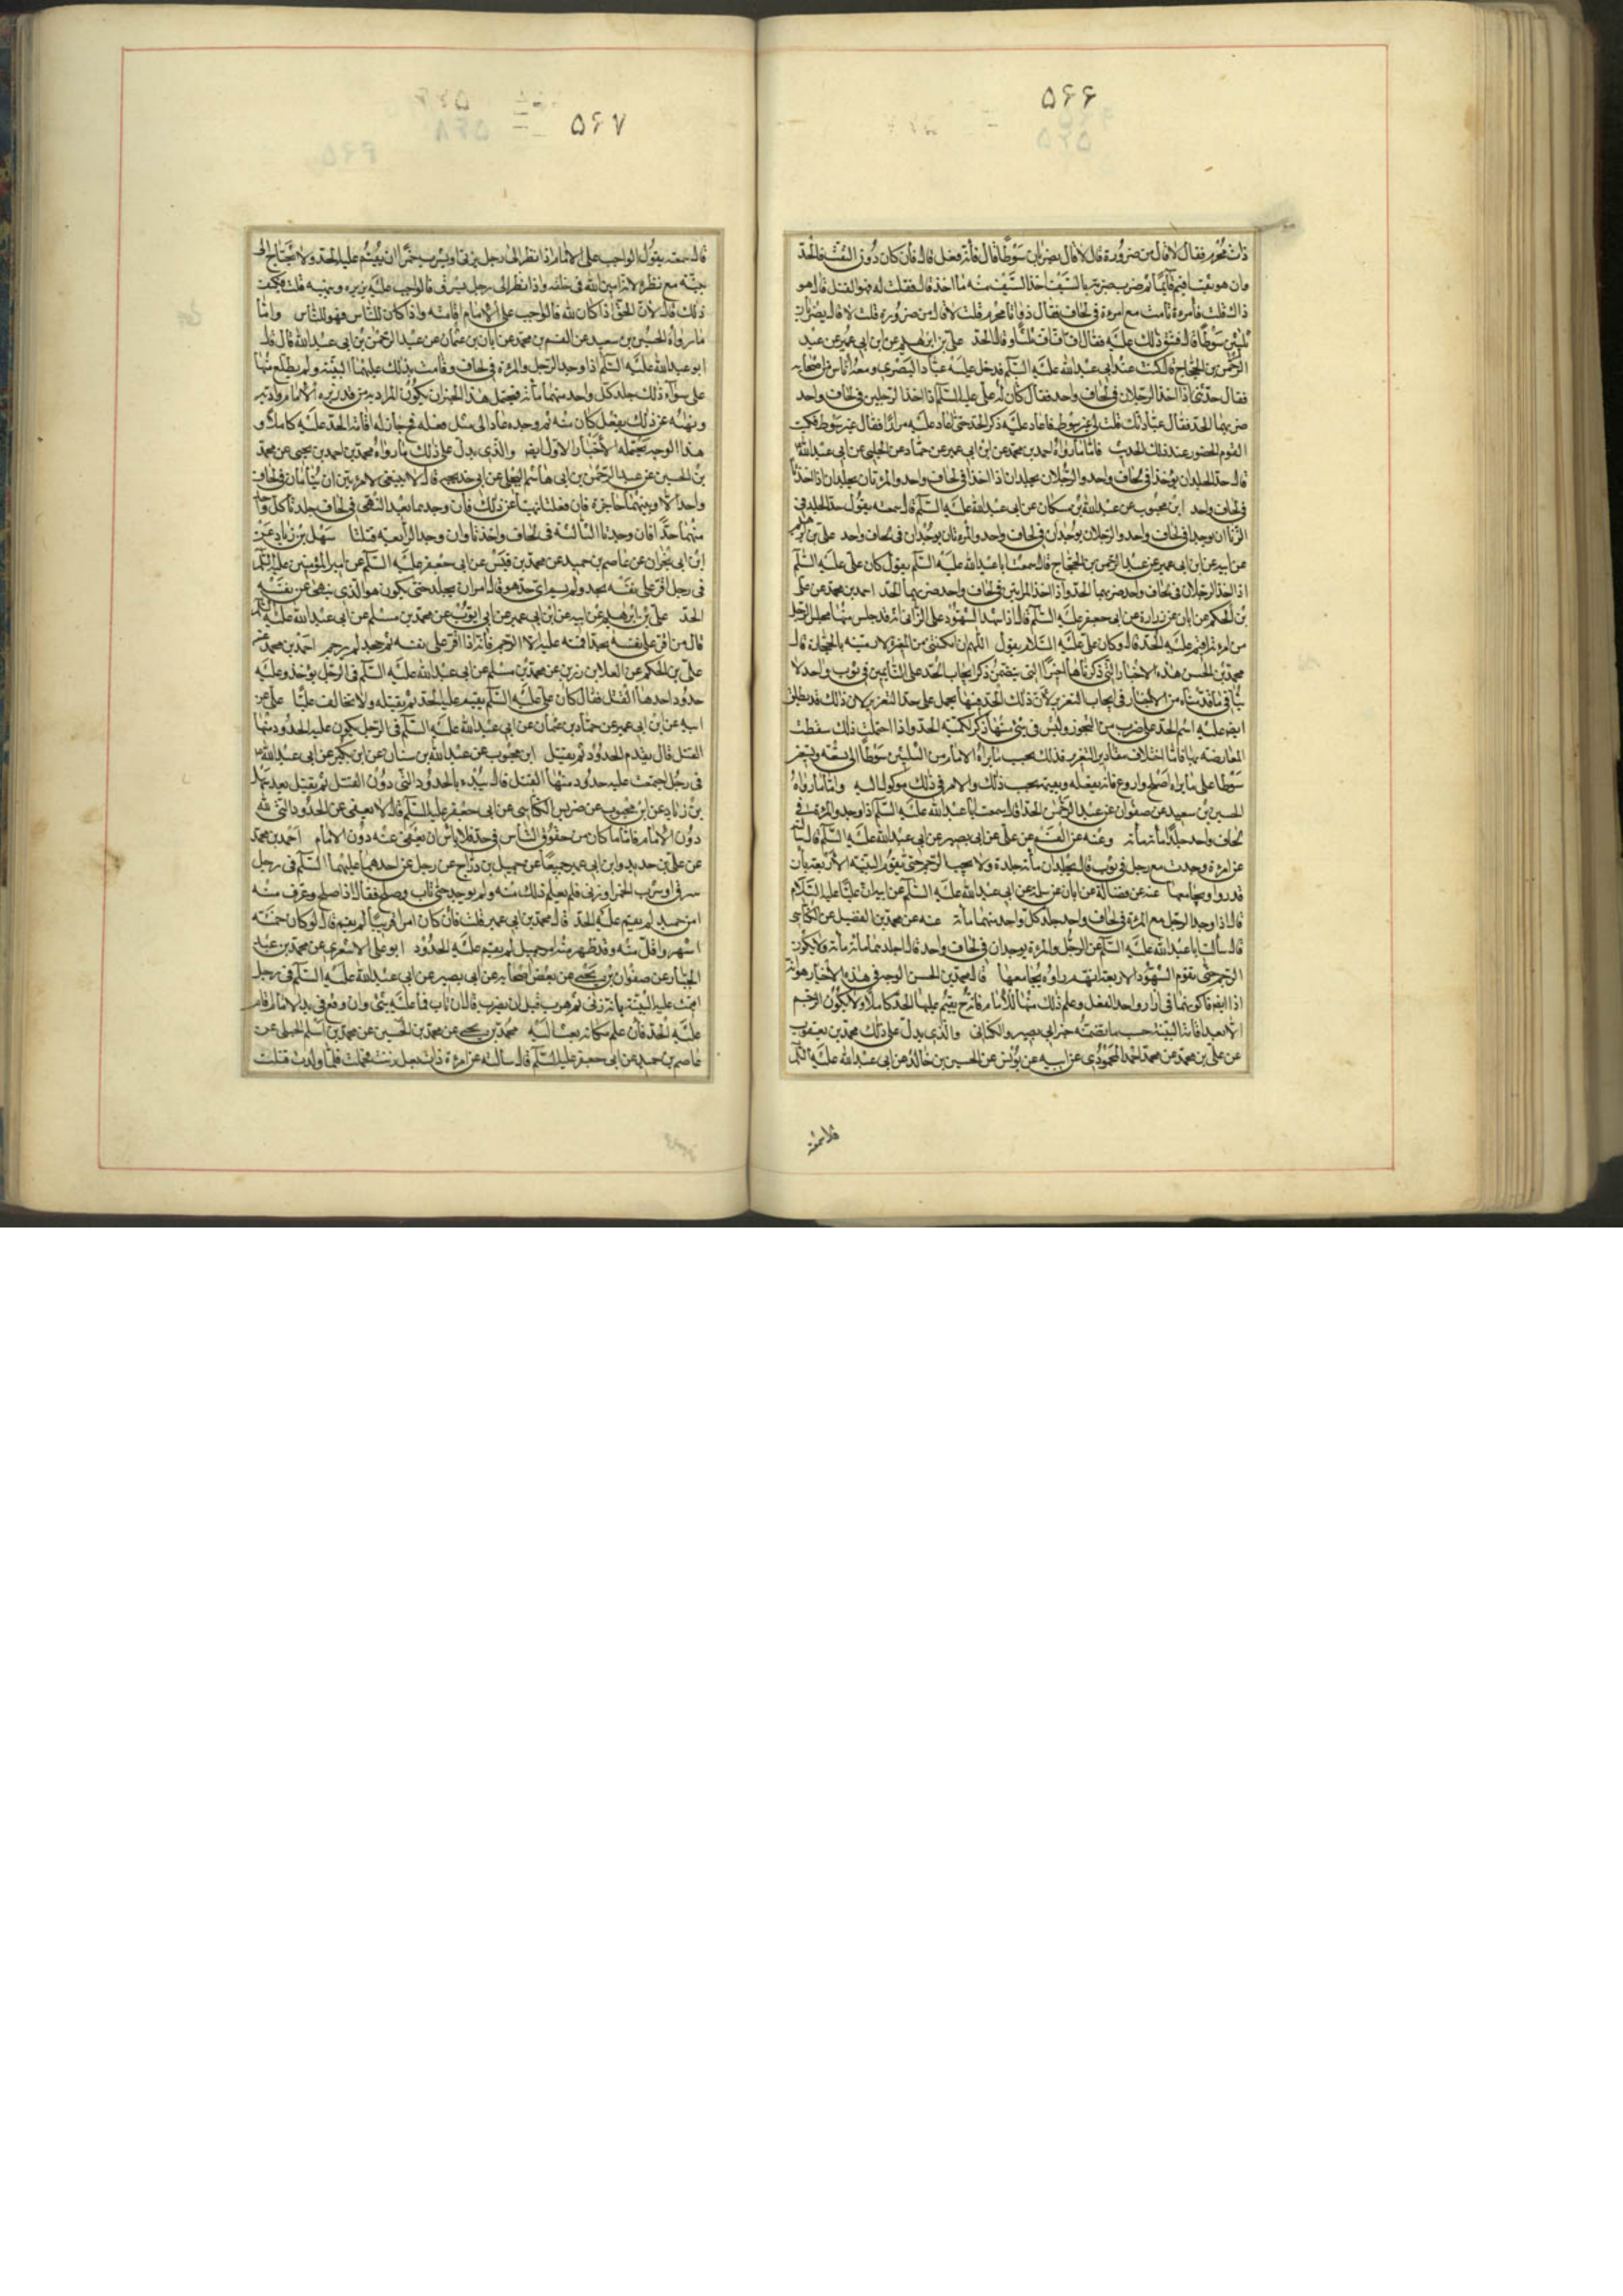 ۵۶۶
ذات محرم فقال لا قال من ضرورة قال لا قال يضربان ثلثين سوطا قال فانه فعل قال فان كان دون الثقب فالحد
وان هو ثقب اقيم قائما ثم ضرب ضربة بالسيف اخذ السيف منه ما اخذ قال فقلت له فهو القتل قال هو
ذاك قلت فامرءة نامت مع امرءة فى لحاف فقال ذواتا محرم قلت لا قال من ضرورة قلت لا قال يضربان
ثلثين سوطا قال فشق ذلك عليه فقال اف اف اف ثلثا وقال الحد على بن ابرهيم عن ابن ابى عمير عن عبد
الرحمن بن الحجاج قال كنت عند ابى عبدالله عليه السلام فدخل عليه عباد البصرى ومعه اناس من اصحابه
فقال حدثنى اذا اخذ الرجلان فى لحاف واحد فقال كان على عليه السلام اذا اخذ الرجلين فى لحاف واحد
ضربهما الحد فقال عباد انك قلت لى غير سوط فاعاد عليه ذكر الحد حتى اعاد عليه مرارا فقال غير سوط فكتب
القوم الحضور عند ذلك الحديث فاما ما رواه احمد بن محمد عن ابن ابى عمير عن حماد عن الحلبى عن ابى عبدالله
قال حد الجلد ان يؤخذا فى لحاف واحد والرجلان يجلدان اذا اخذا فى لحاف واحد والمرءتان يجلدان اذا اخذتا
فى لحاف واحد ابن محبوب عن عبدالله بن مسكان عن ابى عبدالله عليه السلام قال سمعته يقول حد الجلد فى
الزنا ان يوجدا فى لحاف واحد والرجلان يوجدان فى لحاف واحد والمرءتان يوجدان فى لحاف واحد على بن ابرهيم
عن ابيه عن ابن ابى عمير عن عبد الرحمن بن الحجاج قال سمعت ابا عبدالله عليه السلام يقول كان على عليه السلام
اذا اخذ الرجلان فى لحاف واحد ضربهما الحد واذا اخذ المرءتين فى لحاف واحد ضربهما الحد احمد بن محمد عن على
بن الحكم عن ابان عن زرارة عن ابى جعفر عليه السلام قال اذا شهد الشهود على الزانى انه قد جلس منها مجلس الرجل
من امرءته اقيم عليه الحد قال وكان على عليه السلام يقول اللهم ان امكنتنى من المغيرة لارمينه بالحجارة قال
محمد بن الحسن هذه الاخبار التى ذكرناها اخيرا التى يتضمن ذكر ايجاب الحد على النائمين فى ثوب واحد لا
ينافى ما قدمناه من الاخبار فى ايجاب التعزير لان ذلك الحد فيها يحمل على حد التعزير لان ذلك قد يطلق
ايضا عليه اسم الحد على ضرب من التجوز وليس فى شئ منها ذكر كمية الحد واذا احتملت ذلك سقطت
المعارضة بها فاما اختلاف مقادير التعزير فذلك بحسب ما يراه الامام من الثلثين سوطا الى تسعة وتسعين
سوطا على ما يراه اصلح واردع فانه يفعله ويعينه بحسب ذلك والامر فى ذلك موكول اليه واما ما رواه
الحسين بن سعيد عن صفوان عن عبد الرحمن الحذا قال سمعت ابا عبدالله عليه السلام اذا وجد والمرءة فى
لحاف واحد جلدا مأة مأة وعنه عن القسم عن على عن ابى بصير عن ابى عبدالله عليه السلام قال سالته
عن امرءة وجدت مع رجل فى ثوب قال يجلدان مأة جلدة ولا يجب الرجم حتى تقوم البينة الاربعة بان
قد راوه يجامعها عنه عن فضالة عن ابان عن سلمة عن ابى عبدالله عليه السلام عن ابيه ان عليا عليه السلام
قال اذا وجد الرجل مع المرءة فى لحاف واحد جلد كل واحد منهما مأة عنه عن محمد بن الفضيل عن الكنانى
قال سالت ابا عبدالله عليه السلام عن الرجل والمرءة يوجدان فى لحاف واحد قال اجلدهما مأة مأة ولا يكون
الرجم حتى تقوم الشهود الاربعة انهم راوه يجامعها قال محمد بن الحسن الوجه فى هذه الاخبار هو انه
اذا انضم الى كونهما فى ازار واحد الفعل وعلم ذلك منهما الامام فانه يقيم عليهما الحد كاملا ولا يكون الرجم
الا بعد اقامة البينة حسب ما يضمنه خبر ابى بصير والكنانى والذى يدل على ذلك محمد بن يعقوب
عن على بن محمد عن محمد بن احمد المحمودى عن ابيه عن يونس عن الحسين بن خالد عن ابى عبدالله عليه السلم
قال سمعته
۵۶۷
قال سمعته يقول الواجب على الامام اذا نظر الى رجل يزنى او يشرب خمرا ان يقيم عليه الحد ولا يحتاج الى
بينة مع نظره لانه امين الله فى خلقه واذا نظر الى رجل يسرق فالواجب عليه ان يزبره وينهيه قلت كيف
ذلك قال لان الحق اذا كان لله فالواجب على الامام اقامته واذا كان للناس فهو للناس واما
ما رواه الحسين بن سعيد عن القسم بن محمد عن ابان بن عثمان عن عبد الرحمن بن ابى عبدالله قال قال
ابو عبدالله عليه السلام اذا وجد الرجل والمرءة فى لحاف وقامت بذلك عليهما البينة ولم يطلع منهما
على سواء ذلك جلد كل واحد منهما مأة فيحتمل هذا الخبر ان يكون المراد به من قد زبره الامام وادبه
ونهاه عن ذلك بفعل كان منه ثم وجده عاد الى مثل فعله فحينئذ له اقامة الحد عليه كاملا و
هذا الوجه يحتمله الاخبار الاولة ايضا والذى يدل على ذلك ما رواه محمد بن احمد بن يحيى عن محمد
بن الحسين عن عبد الرحمن بن ابى هاشم البجلى عن ابى خديجة قال لا ينبغى لامرءتين ان يناما فى لحاف
واحد الا وبينهما حاجز فان فعلتا نهيتا عن ذلك فان وجدهما بعد النهى فى لحاف جلدتا كل واحدة
منهما حدا فان وجدتا الثالثة فى لحاف واحد حدتا وان وجدتا الرابعة قتلتا سهل بن زياد عن
ابن ابى نجران عن عاصم بن حميد عن محمد بن قيس عن ابى جعفر عليه السلام عن امير المؤمنين عليه السلم
فى رجل اقر على نفسه بحد ولم يسم اى حد هو قال امر ان يجلد حتى يكون هو الذى ينهى عن نفسه
الحد على بن ابرهيم عن ابيه عن ابن ابى عمير عن ابى ايوب عن محمد بن مسلم عن ابى عبدالله عليه السلم
قال من اقر على نفسه بحد اقمته عليه الا الرجم فانه اذا اقر على نفسه ثم جحد لم يرجم احمد بن محمد عن
على بن الحكم عن العلا بن رزين عن محمد بن مسلم عن ابى عبدالله عليه السلام فى الرجل يؤخذ وعليه
حدود احدها القتل فقال كان على عليه السلام يقيم عليه الحد ثم يقتله ولا تخالف عليا على عن
ابيه عن ابن ابى عمير عن حماد بن عثمان عن ابى عبدالله عليه السلام فى الرجل يكون عليه الحدود منها
القتل قال يقدم الحدود ثم يقتل ابن محبوب عن عبدالله بن سنان عن ابن بكير عن ابى عبدالله
فى رجل اجتمعت عليه حدود منها القتل قال يبدء بالحدود التى دون القتل ثم يقتل بعد سهل
بن زياد عن ابن محبوب عن ضريس الكناسى عن ابى جعفر عليه السلام قال لا يعفى عن الحدود التى لله
دون الامام فاما ما كان من حقوق الناس فى حد فلا باس ان يعفى عنه دون الامام احمد بن محمد
عن على بن حديد وابن ابى عمير جميعا عن جميل بن دراج عن رجل عن احدهما عليهما السلام فى رجل
سرق او شرب الخمر او زنى فلم يعلم ذلك منه ولم يوجد حتى تاب وصلح فقال اذا صلح وعرف منه
امر جميل لم يقم عليه الحد قال محمد بن ابى عمير قلت فان كان امرا قريبا لم يقم قال لو كان خمسة
اشهر او اقل منه وقد ظهر منه امر جميل لم يقم عليه الحدود ابو على الاشعرى عن محمد بن عبد
الجبار عن صفوان بن يحيى عن بعض اصحابه عن ابى بصير عن ابى عبدالله عليه السلام فى رجل
اقيمت عليه البينة بانه زنى ثم هرب قبل ان يضرب قال ان تاب فما عليه شئ وان وقع فى يد الامام اقام
عليه الحد فان علم مكانه بعث اليه محمد بن يحيى عن محمد بن الحسين عن محمد بن اسلم الجبلى عن
عاصم بن حميد عن ابى جعفر عليه السلام قال سالته عن امرءة ذات بعل زنت فحملت فلما ولدت قتلت